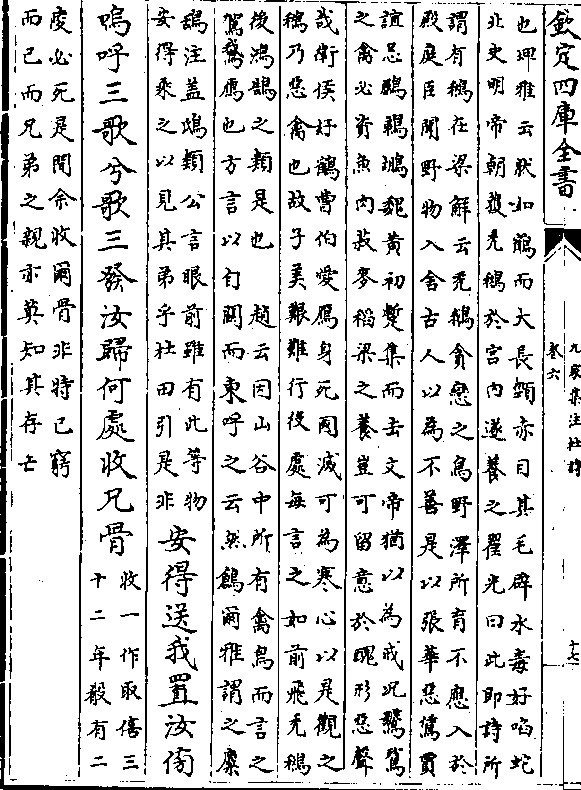 欽定四庫全書
九家集注杜詩
卷六
十七
也埤雅云狀如鶴而大長頸赤目其毛辟水毒好啗蛇
北史明帝朝獲禿鶖於宮內遂養之崔光曰此即詩所
謂有鶖在梁解云禿鶖貪惡之鳥野澤所育不應入於
殿庭臣聞野物入舍古人以為不善是以張華惡鵩賈
誼忌鵩鵜鶘魏黃初蹔集而去文帝猶以為戒况饕餮
之禽必資魚肉菽麥稻粱之養豈可留意於醜形惡聲
哉衛侯好鶴曹伯愛鴈身死國滅可為寒心以是觀之
鶖乃惡禽也故子美艱難行役處每言之如前飛禿鶖
後鴻鵠之類是也 趙云因山谷中所有禽鳥而言之
駕鵞鴈也方言以自關而東呼之云然鶬爾雅謂之麋
鴰注蓋鴰類公言眼前雖有此等物
安得乘之以見其弟乎杜田引是非
安得送我置汝傍
嗚呼三歌兮歌三發汝歸何處收兄骨
收一作取僖三
十二年殽有二
陵必死是間余收爾骨非時已窮
而已而兄弟之親亦莫知其存亡